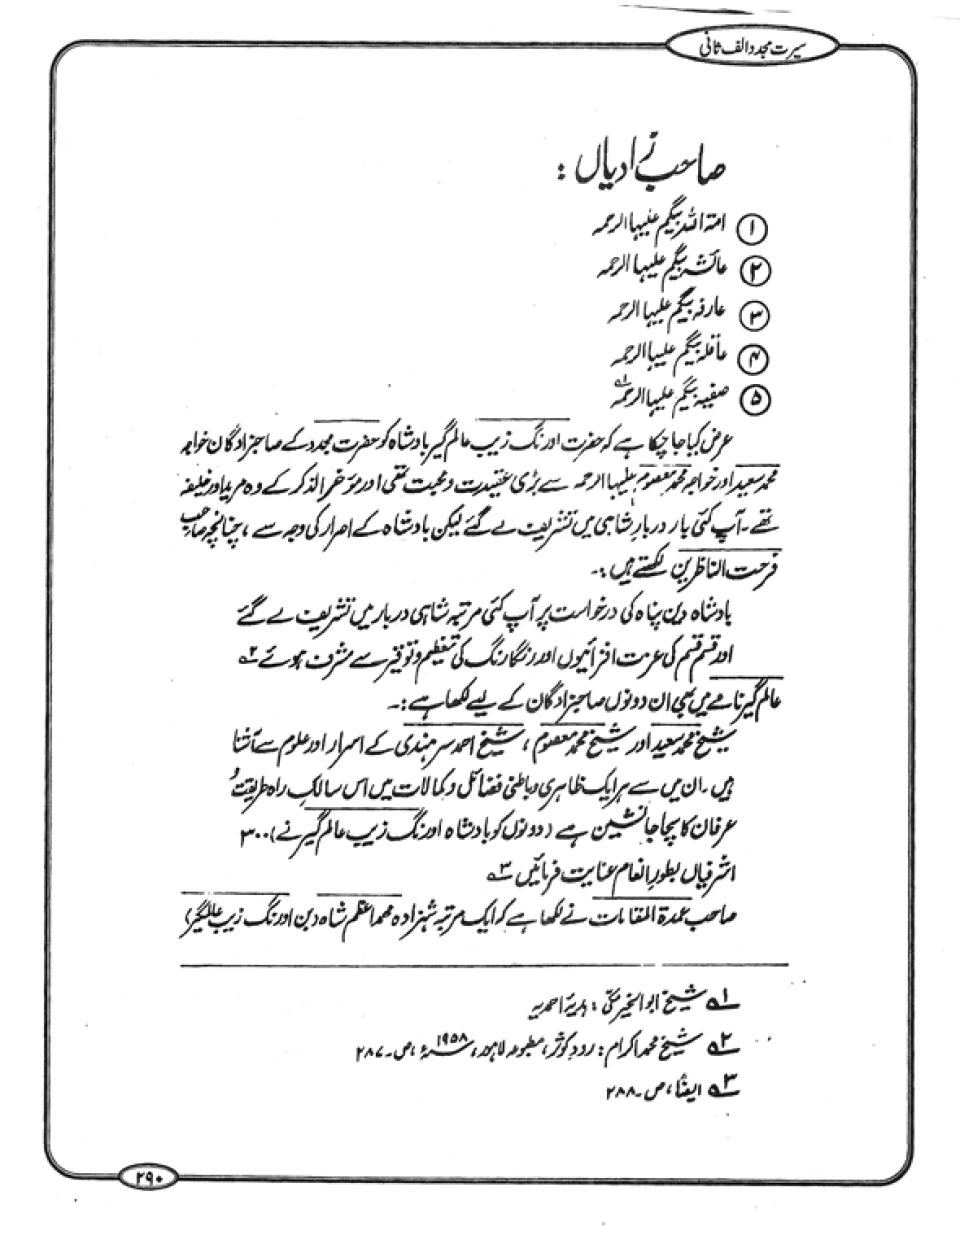 سیرت مجدد الف ثانی
صاحب زادیاں :
۱ امۃ اللہ بیگم علیہا الرحمہ
۲ عائشہ بیگم علیہا الرحمہ
۳ عارفہ بیگم علیہا الرحمہ
۴ عاقلہ بیگم علیہا الرحمہ
۵ صفیہ بیگم علیہا الرحمہ ۱ے
عرض کیا جا چکا ہے کہ حضرت اورنگ زیب عالم گیر بادشاہ کو حضرت مجدد کے صاحبزادگان خواجہ
محمد سعید اور خواجہ محمد معصوم علیہا الرحمہ سے بڑی عقیدت و محبت تھی اور مؤخر الذکر کے وہ مرید اور خلیفہ
تھے۔ آپ کئی بار دربار شاہی میں تشریف لے گئے لیکن بادشاہ کے اصرار کی وجہ سے ، چنانچہ صاحب
فرحت الناظرین لکھتے ہیں :۔
بادشاہ دین پناہ کی درخواست پر آپ کئی مرتبہ شاہی دربار میں تشریف لے گئے
اور قسم قسم کی عزت افزائیوں اور رنگا رنگ کی تعظیم و توقیر سے مشرف ہوئے ۲ے
عالم گیر نامے میں بھی ان دونوں صاحبزادگان کے لیے لکھا ہے :۔
شیخ محمد سعید اور شیخ محمد معصوم ، شیخ احمد سرہندی کے اسرار اور علوم سے آشنا
ہیں۔ ان میں سے ہر ایک ظاہری و باطنی فضائل و کمالات میں اس سالک راہ طریقت و
عرفان کا سچا جانشین ہے (دونوں کو بادشاہ اورنگ زیب عالم گیر نے) ۳۰۰
اشرفیاں بطور انعام عنایت فرمائیں ۳ے
صاحب عمدۃ المقامات نے لکھا ہے کہ ایک مرتبہ شہزادہ محمد اعظم شاہ (بن اورنگ زیب عالمگیر)
۱ے شیخ ابوالخیر مکی : ہدیۂ احمدیہ
۲ے شیخ محمد اکرام : رود کوثر ، مطبوعہ لاہور ، ۱۹۵۸ء ، ص۔ ۲۸۷
۳ے ایضاً ، ص۔ ۲۸۸
۲۹۰